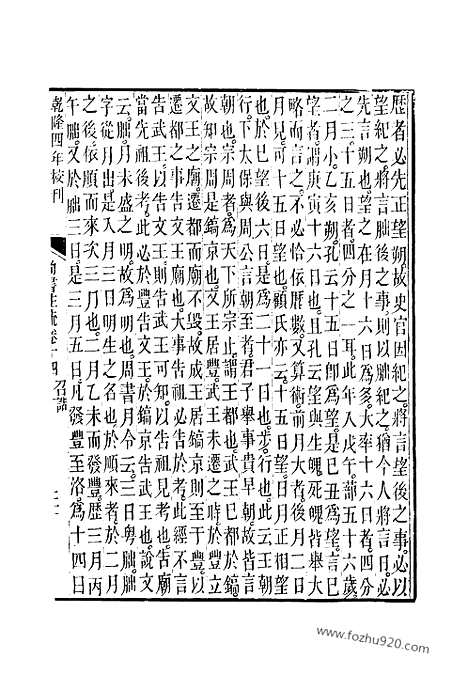 曆者必先正望朔故史官因紀之將言望後之事必以
望紀之將言朏後之事則以朏紀之猶今人將言日必
先言朔也望之在月十六日爲多大率十六日者四分
之三十五日者四分之一耳此年入戊午蔀五十六歲
二月小乙亥朔孔云十五日卽爲望是己丑爲望言已
望者謂庚寅十六日也且孔云望與生魄死魄皆舉大
略而言之不必恰依曆數又算術前月大者後月二日
月見可十五日望也顧氏亦云十五日望日月正相望
也於已望後六日是爲二十一日也步行也此云王朝
行下太保與周公言朝至者君子舉事貴早朝故皆言
朝也宗周者爲天下所宗止謂王都也武王已都於鎬
故知宗周是鎬京也文王居豐武王未遷之時於豐立
文王之廟遷都而廟不毀故成王居鎬京則至于豐以
遷都之事告文王廟也大事告祖必告於考此經不言
告武王以告文王則告武王可知以告祖見考也告廟
當先祖後考此必於豐告文王於鎬京告武王也說文
云朏月未盛之明故爲明也周書月令云三日粵朏朏
字從月出是入月三日明生之名也於順來者於二月
之後依順而來次三月也二月乙未而發豐歷三月丙
午朏又於朏三日是三月五日凡發豐至洛爲十四日
乾隆四年校刊
尚書注疏卷十四 召誥
二十
www.fozhu920.com